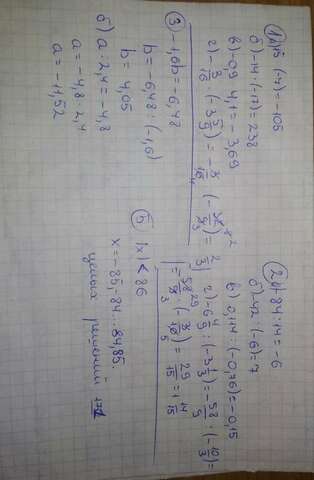 ① 15 · (-7) = -105
б) -14 · (-17) = 238
в) -0,9 · 4,1 = -3,69
г) -3/16 · (-3 5/9) = -3/16 · (-32/9) = 2/3
② -84 : 14 = -6
б) -42 : (-6) = 7
в) 0,114 : (-0,76) = -0,15
г) -6 4/9 : (-3 1/3) = -58/9 : (-10/3) =
= -58/9 · (-3/10) = 29/15 = 1 14/15
③ -1,6b = -6,48
b = -6,48 : (-1,6)
b = 4,05
б) a : 2,4 = -4,8
a = -4,8 · 2,4
a = -11,52
⑤ |x| < 86
x = -85; -84 ... 84, 85.
целых решений